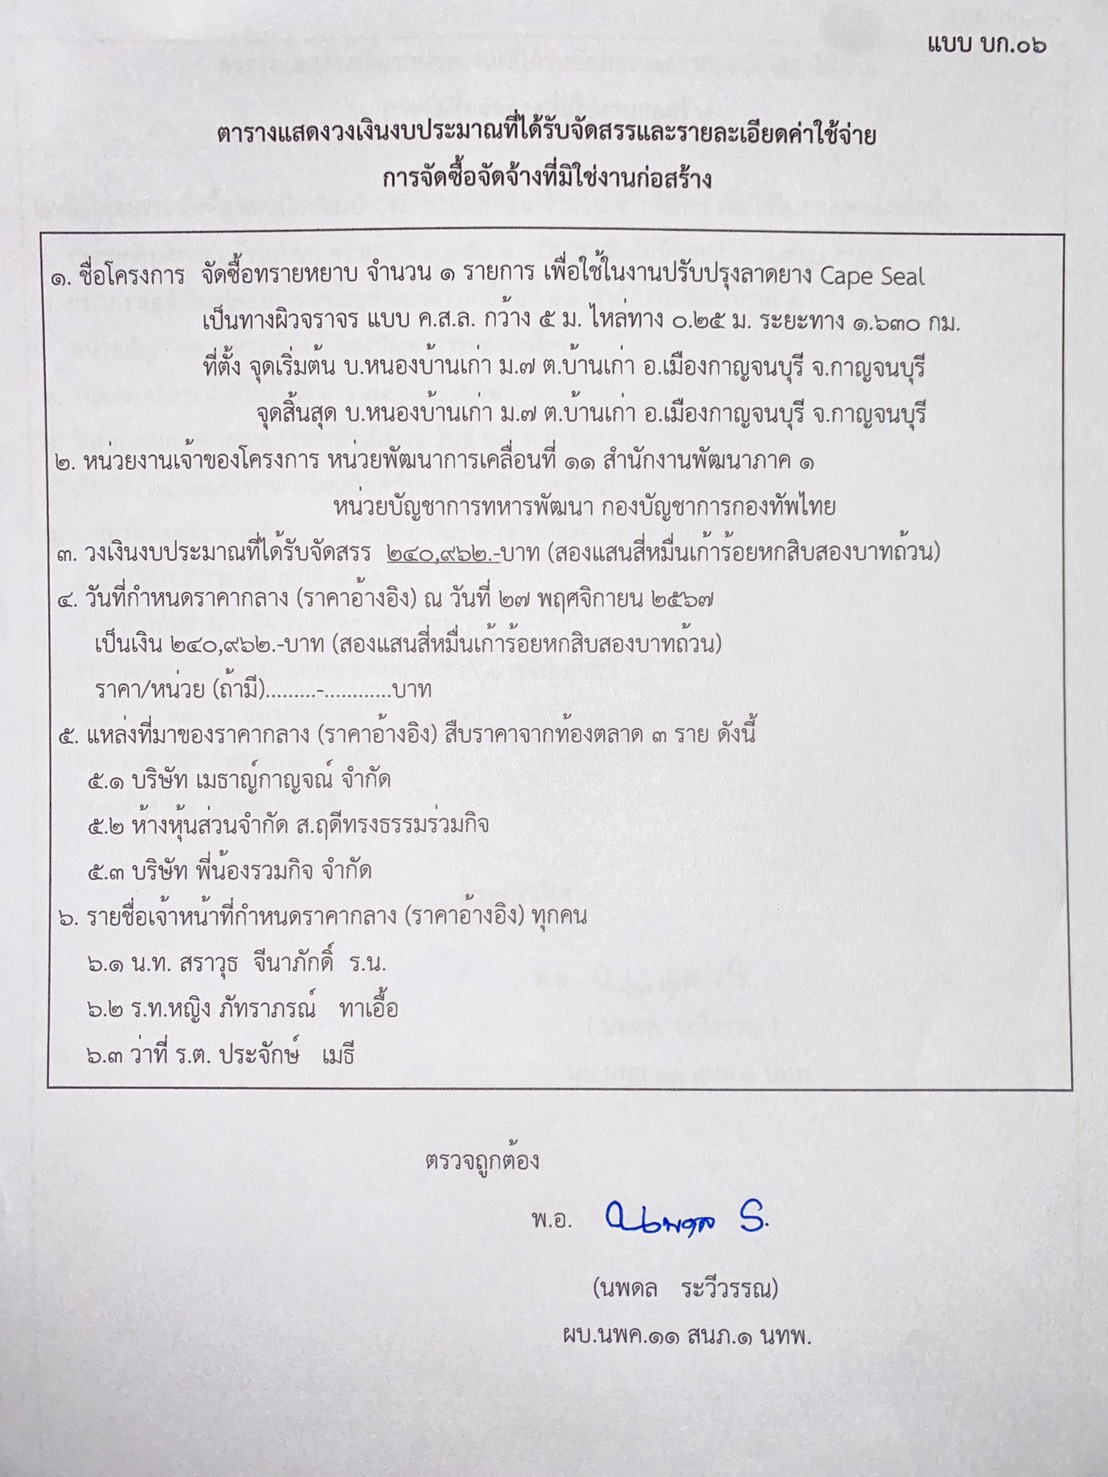 แบบ บก.๐๖
ตารางแสดงวงเงินงบประมาณที่ได้รับจัดสรรและรายละเอียดค่าใช้จ่าย
การจัดซื้อจัดจ้างที่มิใช่งานก่อสร้าง
๑. ชื่อโครงการ จัดซื้อทรายหยาบ จำนวน ๑ รายการ เพื่อใช้ในงานปรับปรุงลาดยาง Cape Seal
เป็นทางผิวจราจร แบบ ค.ส.ล. กว้าง ๕ ม. ไหล่ทาง ๐.๒๕ ม. ระยะทาง ๑.๖๓๐ กม.
ที่ตั้ง จุดเริ่มต้น บ.หนองบ้านเก่า ม.๗ ต.บ้านเก่า อ.เมืองกาญจนบุรี จ.กาญจนบุรี
จุดสิ้นสุด บ.หนองบ้านเก่า ม.๗ ต.บ้านเก่า อ.เมืองกาญจนบุรี จ.กาญจนบุรี
๒. หน่วยงานเจ้าของโครงการ หน่วยพัฒนาการเคลื่อนที่ ๑๑ สำนักงานพัฒนาภาค ๑
หน่วยบัญชาการทหารพัฒนา กองบัญชาการกองทัพไทย
๓. วงเงินงบประมาณที่ได้รับจัดสรร ๒๔๐,๙๖๒.-บาท (สองแสนสี่หมื่นเก้าร้อยหกสิบสองบาทถ้วน)
๔. วันที่กำหนดราคากลาง (ราคาอ้างอิง) ณ วันที่ ๒๗ พฤศจิกายน ๒๕๖๗
เป็นเงิน ๒๔๐,๙๖๒.-บาท (สองแสนสี่หมื่นเก้าร้อยหกสิบสองบาทถ้วน)
ราคา/หน่วย (ถ้ามี).........-............บาท
๕. แหล่งที่มาของราคากลาง (ราคาอ้างอิง) สืบราคาจากท้องตลาด ๓ ราย ดังนี้
๕.๑ บริษัท เมธาญ์กาญจณ์ จำกัด
๕.๒ ห้างหุ้นส่วนจำกัด ส.ฤดีทรงธรรมร่วมกิจ
๕.๓ บริษัท พี่น้องรวมกิจ จำกัด
๖. รายชื่อเจ้าหน้าที่กำหนดราคากลาง (ราคาอ้างอิง) ทุกคน
๖.๑ น.ท. สราวุธ จีนาภักดิ์ ร.น.
๖.๒ ร.ท.หญิง ภัทราภรณ์ ทาเอื้อ
๖.๓ ว่าที่ ร.ต. ประจักษ์ เมธี
ตรวจถูกต้อง
พ.อ. นพดล S.
(นพดล ระวีวรรณ)
ผบ.นพค.๑๑ สนภ.๑ นทพ.